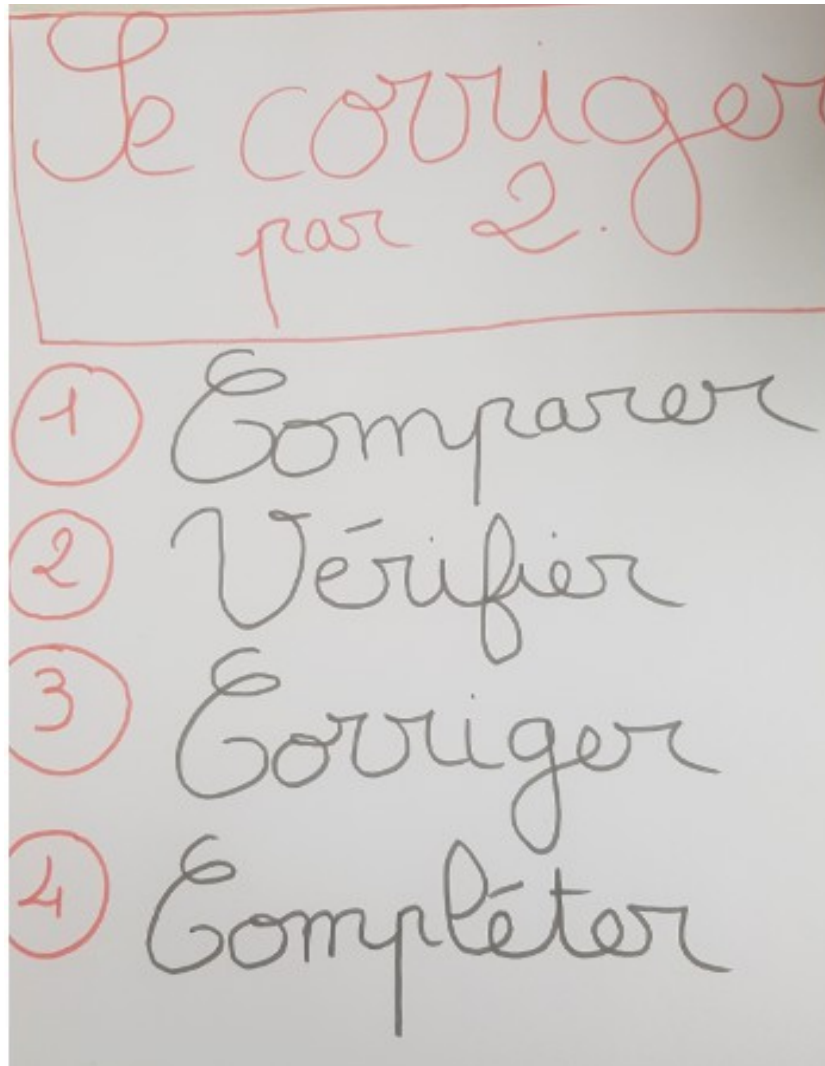 Se corriger
par 2.
1 Comparer
2 Vérifier
3 Corriger
4 Compléter